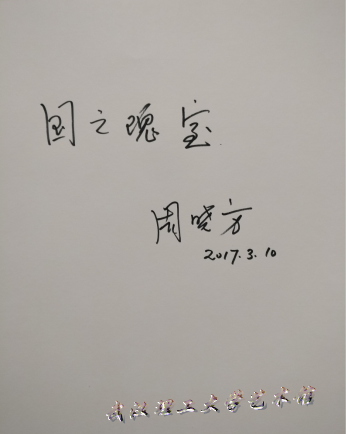 国之瑰宝
周晓方
2017.3.10
武汉理工大学艺术馆